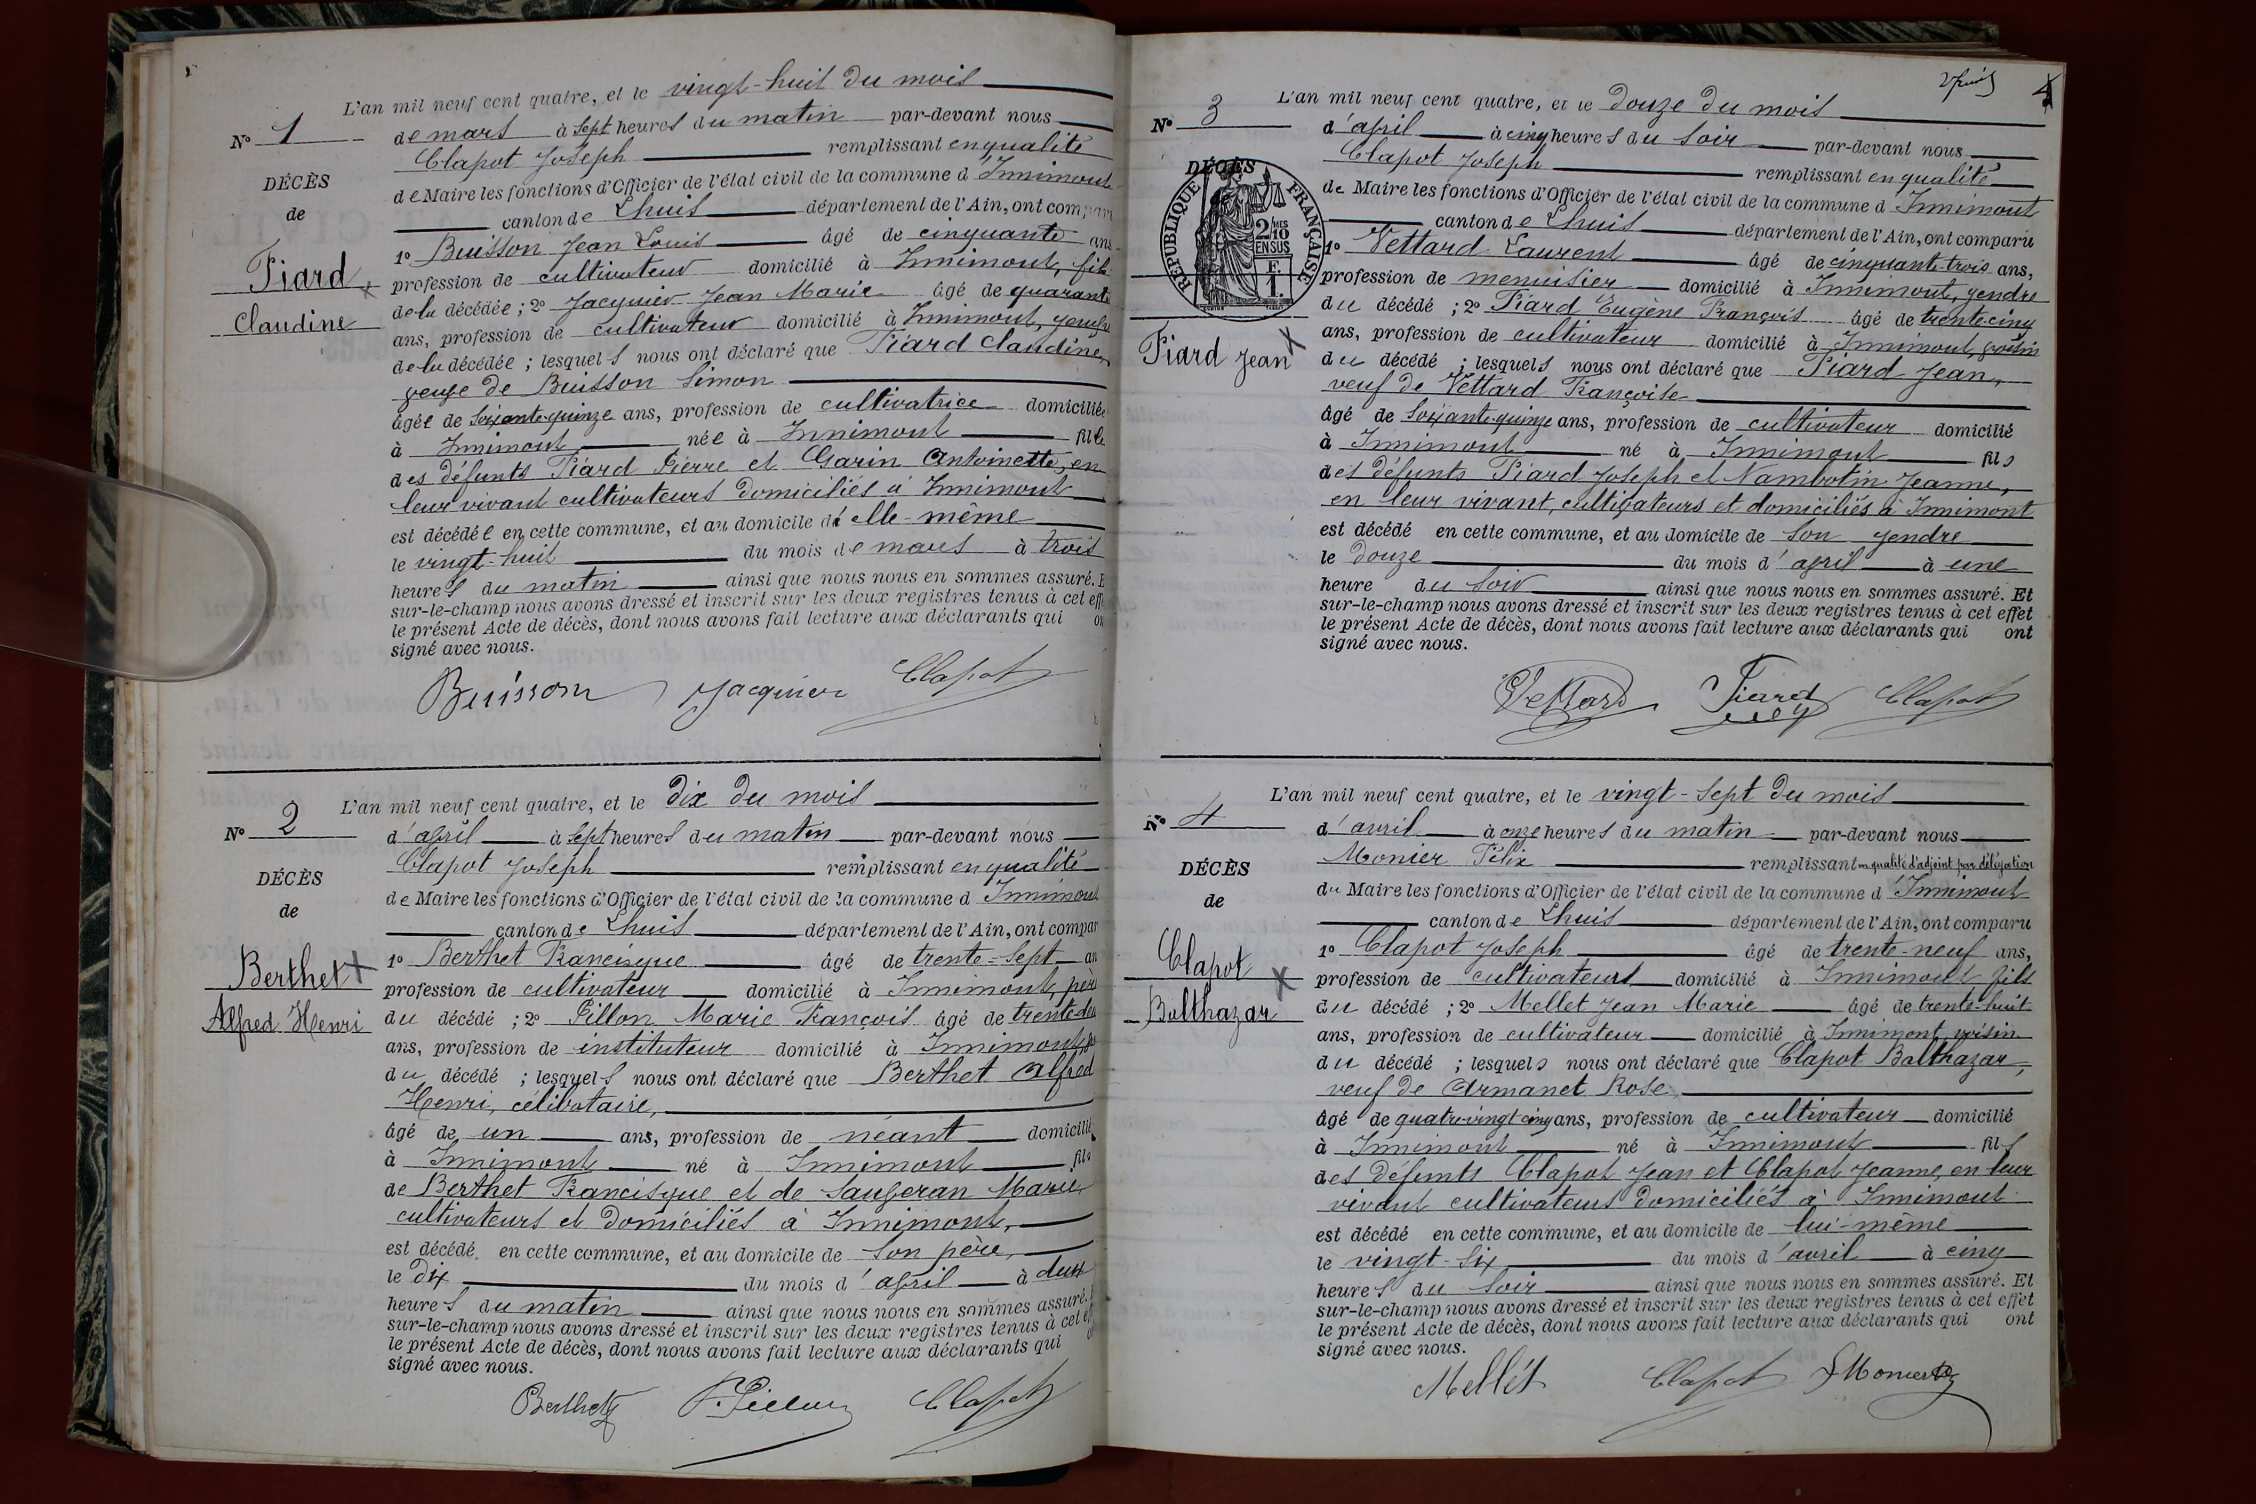 L'an mil neuf cent quatre, et le vingt-huit du mois
N° 1
de mars à sept heures du matin par-devant nous
Clapot Joseph remplissant en qualité
DÉCÈS
de Maire les fonctions d'Officier de l'état civil de la commune d'Innimont
de
canton de Lhuis département de l'Ain, ont comparu
1° Buisson Jean Louis âgé de cinquante ans
Piard
Claudine
profession de cultivateur domicilié à Innimont, fils
de la décédée ; 2° Jacquier Jean Marie âgé de quarante
ans, profession de cultivateur domicilié à Innimont, gendre
de la décédée ; lesquels nous ont déclaré que Piard Claudine,
veuve de Buisson Simon
âgée de soixante-quinze ans, profession de cultivatrice domiciliée
à Innimont née à Innimont fille
des défunts Piard Pierre et Garin Antoinette, en
leur vivant cultivateurs domiciliés à Innimont
est décédée en cette commune, et au domicile d'elle-même
le vingt-huit du mois de mars à trois
heures du matin ainsi que nous nous en sommes assuré. E
sur-le-champ nous avons dressé et inscrit sur les deux registres tenus à cet eff
le présent Acte de décès, dont nous avons fait lecture aux déclarants qui on
signé avec nous.
Buisson Jacquier Clapot
L'an mil neuf cent quatre, et le dix du mois
N° 2
d'april à sept heures du matin par-devant nous
Clapot Joseph remplissant en qualité
DÉCÈS
de Maire les fonctions d'Officier de l'état civil de la commune d'Innimont
de
canton de Lhuis département de l'Ain, ont compar
Berthet
Alfred Henri
1° Berthet Francisque âgé de trente-sept an
profession de cultivateur domicilié à Innimont, père
du décédé ; 2° Pillon Marie François âgé de trente-deu
ans, profession de instituteur domicilié à Innimont
du décédé ; lesquels nous ont déclaré que Berthet Alfred
Henri, célibataire,
âgé de un ans, profession de néant domicilié
à Innimont né à Innimont fils
de Berthet Francisque et de Saugeran Marie
cultivateurs et domiciliés à Innimont,
est décédé en cette commune, et au domicile de son père,
le dix du mois d'april à deux
heures du matin ainsi que nous nous en sommes assuré.
sur-le-champ nous avons dressé et inscrit sur les deux registres tenus à cet ef
le présent Acte de décès, dont nous avons fait lecture aux déclarants qui o
signé avec nous.
Berthet F. Pillon Clapot
4
L'an mil neuf cent quatre, et le douze du mois
N° 3
d'april à cinq heures du soir par-devant nous
Clapot Joseph remplissant en qualité
DÉCÈS
RÉPUBLIQUE FRANÇAISE
2/10MES
EN SUS
F.
1.
de Maire les fonctions d'Officier de l'état civil de la commune d'Innimont
canton de Lhuis département de l'Ain, ont comparu
1° Vettard Laurent âgé de cinquante-trois ans,
profession de menuisier domicilié à Innimont, gendre
du décédé ; 2° Piard Eugène François âgé de trente-cinq
Piard Jean
ans, profession de cultivateur domicilié à Innimont, voisin
du décédé ; lesquels nous ont déclaré que Piard Jean,
veuf de Vettard Françoise
âgé de soixante-quinze ans, profession de cultivateur domicilié
à Innimont né à Innimont fils
des défunts Piard Joseph et Nambotin Jeanne,
en leur vivant, cultivateurs et domiciliés à Innimont
est décédé en cette commune, et au domicile de son gendre
le douze du mois d'april à une
heure du soir ainsi que nous nous en sommes assuré. Et
sur-le-champ nous avons dressé et inscrit sur les deux registres tenus à cet effet
le présent Acte de décès, dont nous avons fait lecture aux déclarants qui ont
signé avec nous.
Vettard Piard Clapot
L'an mil neuf cent quatre, et le vingt-sept du mois
N° 4
d'avril à onze heures du matin par-devant nous
Monier Félix remplissant en qualité d'adjoint par délégation
DÉCÈS
du Maire les fonctions d'Officier de l'état civil de la commune d'Innimont
de
canton de Lhuis département de l'Ain, ont comparu
Clapot
Balthazar
1° Clapot Joseph âgé de trente-neuf ans,
profession de cultivateurs domicilié à Innimont fils
du décédé ; 2° Mellet Jean Marie âgé de trente-huit
ans, profession de cultivateur domicilié à Innimont, voisin
du décédé ; lesquels nous ont déclaré que Clapot Balthazar,
veuf de Armanet Rose
âgé de quatre-vingt-cinq ans, profession de cultivateur domicilié
à Innimont né à Innimont fils
des défunts Clapot Jean et Clapot Jeanne, en leur
vivant cultivateurs domiciliés à Innimont
est décédé en cette commune, et au domicile de lui-même
le vingt-six du mois d'avril à cinq
heures du soir ainsi que nous nous en sommes assuré. Et
sur-le-champ nous avons dressé et inscrit sur les deux registres tenus à cet effet
le présent Acte de décès, dont nous avons fait lecture aux déclarants qui ont
signé avec nous.
Mellet Clapot F Monier